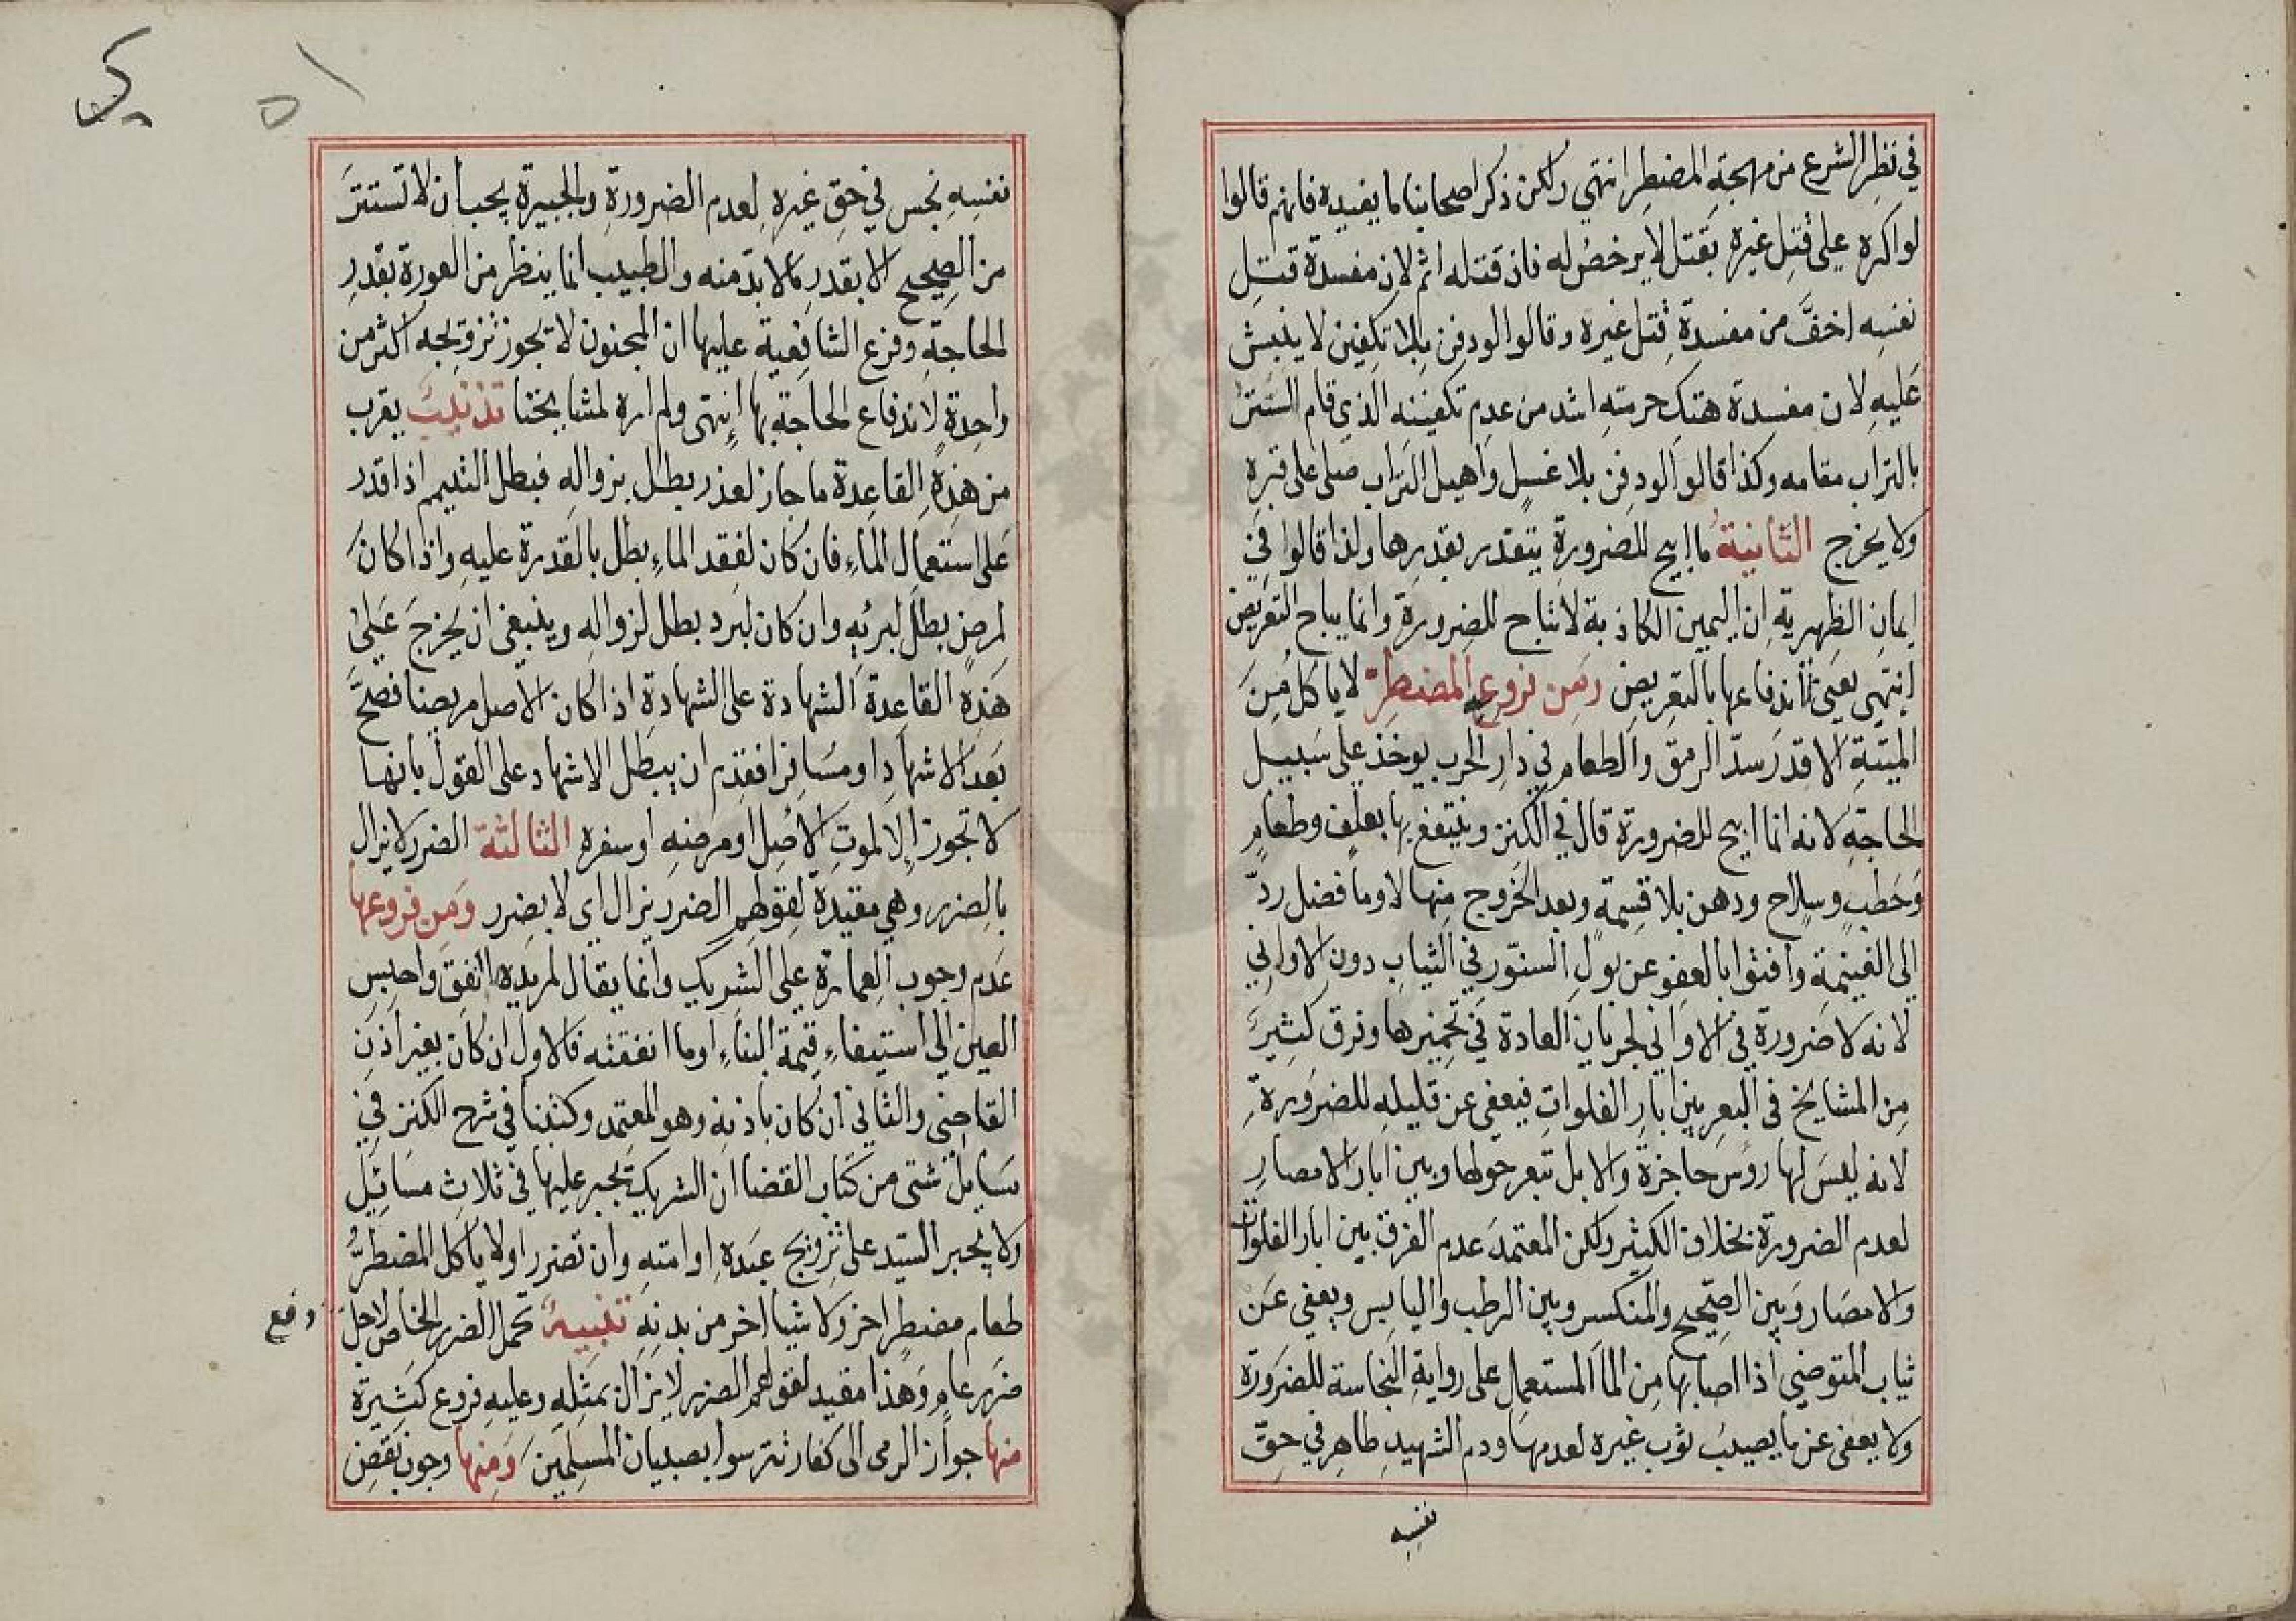 في نظر الشرع من مهجة المضطر انتهى ولكن ذكر اصحابنا ما يفيده فانهم قالوا
لو اكره على قتل غيره بقتل لا يرخص له فان قتله اثم لان مفسدة قتل
نفسه اخف من مفسدة قتل غيره وقالوا لو دفن بلا تكفين لا ينبش
عليه لان مفسدة هتك حرمته اشد من عدم تكفينه الذي قام الستر
بالتراب مقامه وكذا قالوا لو دفن بلا غسل واهيل التراب صلى على قبره
ولا يخرج الثانية ما ابيح للضرورة يتقدر بقدرها ولذا قالوا في
ايمان الظهيرية ان اليمين الكاذبة لا تباح للضرورة وانما يباح التعريض
انتهى يعني لاندفاعها بالتعريض ومن فروعه المضطر لا ياكل من
الميتة الا قدر سد الرمق والطعام في دار الحرب يوخذ على سبيل
الحاجة لانه انما ابيح للضرورة قال في الكنز وينتفع بها بعلف وطعام
وحطب وسلاح ودهن بلا قسمة وبعد الخروج منها لا وما فضل رد
الى الغنيمة وافتوا بالعفو عن بول السنور في الثياب دون الاواني
لانه لا ضرورة في الاواني لجريان العادة في تخميرها وفرق كثير
من المشايخ في البعر بين ابار الفلوات فيعفى عن قليله للضرورة
لانه ليس لها روس حاجزة والابل تبعر حولها وبين ابار الامصار
لعدم الضرورة بخلاف الكثير ولكن المعتمد عدم الفرق بين ابار الفلوات
والامصار وبين الصحيح والمنكسر وبين الرطب واليابس ويعفى عن
ثياب المتوضي اذا اصابها من الما المستعمل على رواية النجاسة للضرورة
ولا يعفى عن ما يصيب ثوب غيره لعدمها ودم الشهيد طاهر في حق
نفسه
نفسه نجس في حق غيره لعدم الضرورة والجبيرة يجب ان لا تستتر
من الصحيح الا بقدر ما لا بد منه والطبيب انما ينظر من العورة بقدر
الحاجة وفرع الشافعية عليها ان المجنون لا تجوز تزويجه اكثر من
واحدة لاندفاع الحاجة بها انتهى ولم اره لمشايخنا تذنيب يقرب
من هذه القاعدة ما جاز لعذر بطل بزواله فبطل التيمم اذا قدر
على استعمال الماء فان كان لفقد الماء بطل بالقدرة عليه واذا كان
لمرض بطل لبرئه وان كان لبرد بطل لزواله وينبغي ان يخرج على
هذه القاعدة الشهادة على الشهادة اذا كان الاصل مريضا فصح
بعد الاشهاد او مسافرا فقدم ان يبطل الاشهاد على القول بانها
لا تجوز الا لموت الاصل او مرضه او سفره الثالثة الضرر لا يزال
بالضرر وهي مقيدة لقولهم الضرر يزال اي لا بضرر ومن فروعها
عدم وجوب العمارة على الشريك وانما يقال لمريدها انفق واحبس
العين الى استيفاء قيمة البناء او ما انفقته فالاول ان كان بغير اذن
القاضي والثاني ان كان باذنه وهو المعتمد وكتبنا في شرح الكنز في
مسايل شتى من كتاب القضا ان الشريك يجبر عليها في ثلاث مسائل
ولا يجبر السيد على تزويج عبده او امته وان تضررا ولا ياكل المضطر
طعام مضطر اخر ولا شيا اخر من بدنه تنبيه تحمل الضرر الخاص لاجل دفع
ضرر عام وهذا مقيد لقولهم الضرر لا يزال بمثله وعليه فروع كثيرة
منها جواز الرمى الى كفار تترسوا بصبيان المسلمين ومنها وجوب نقض